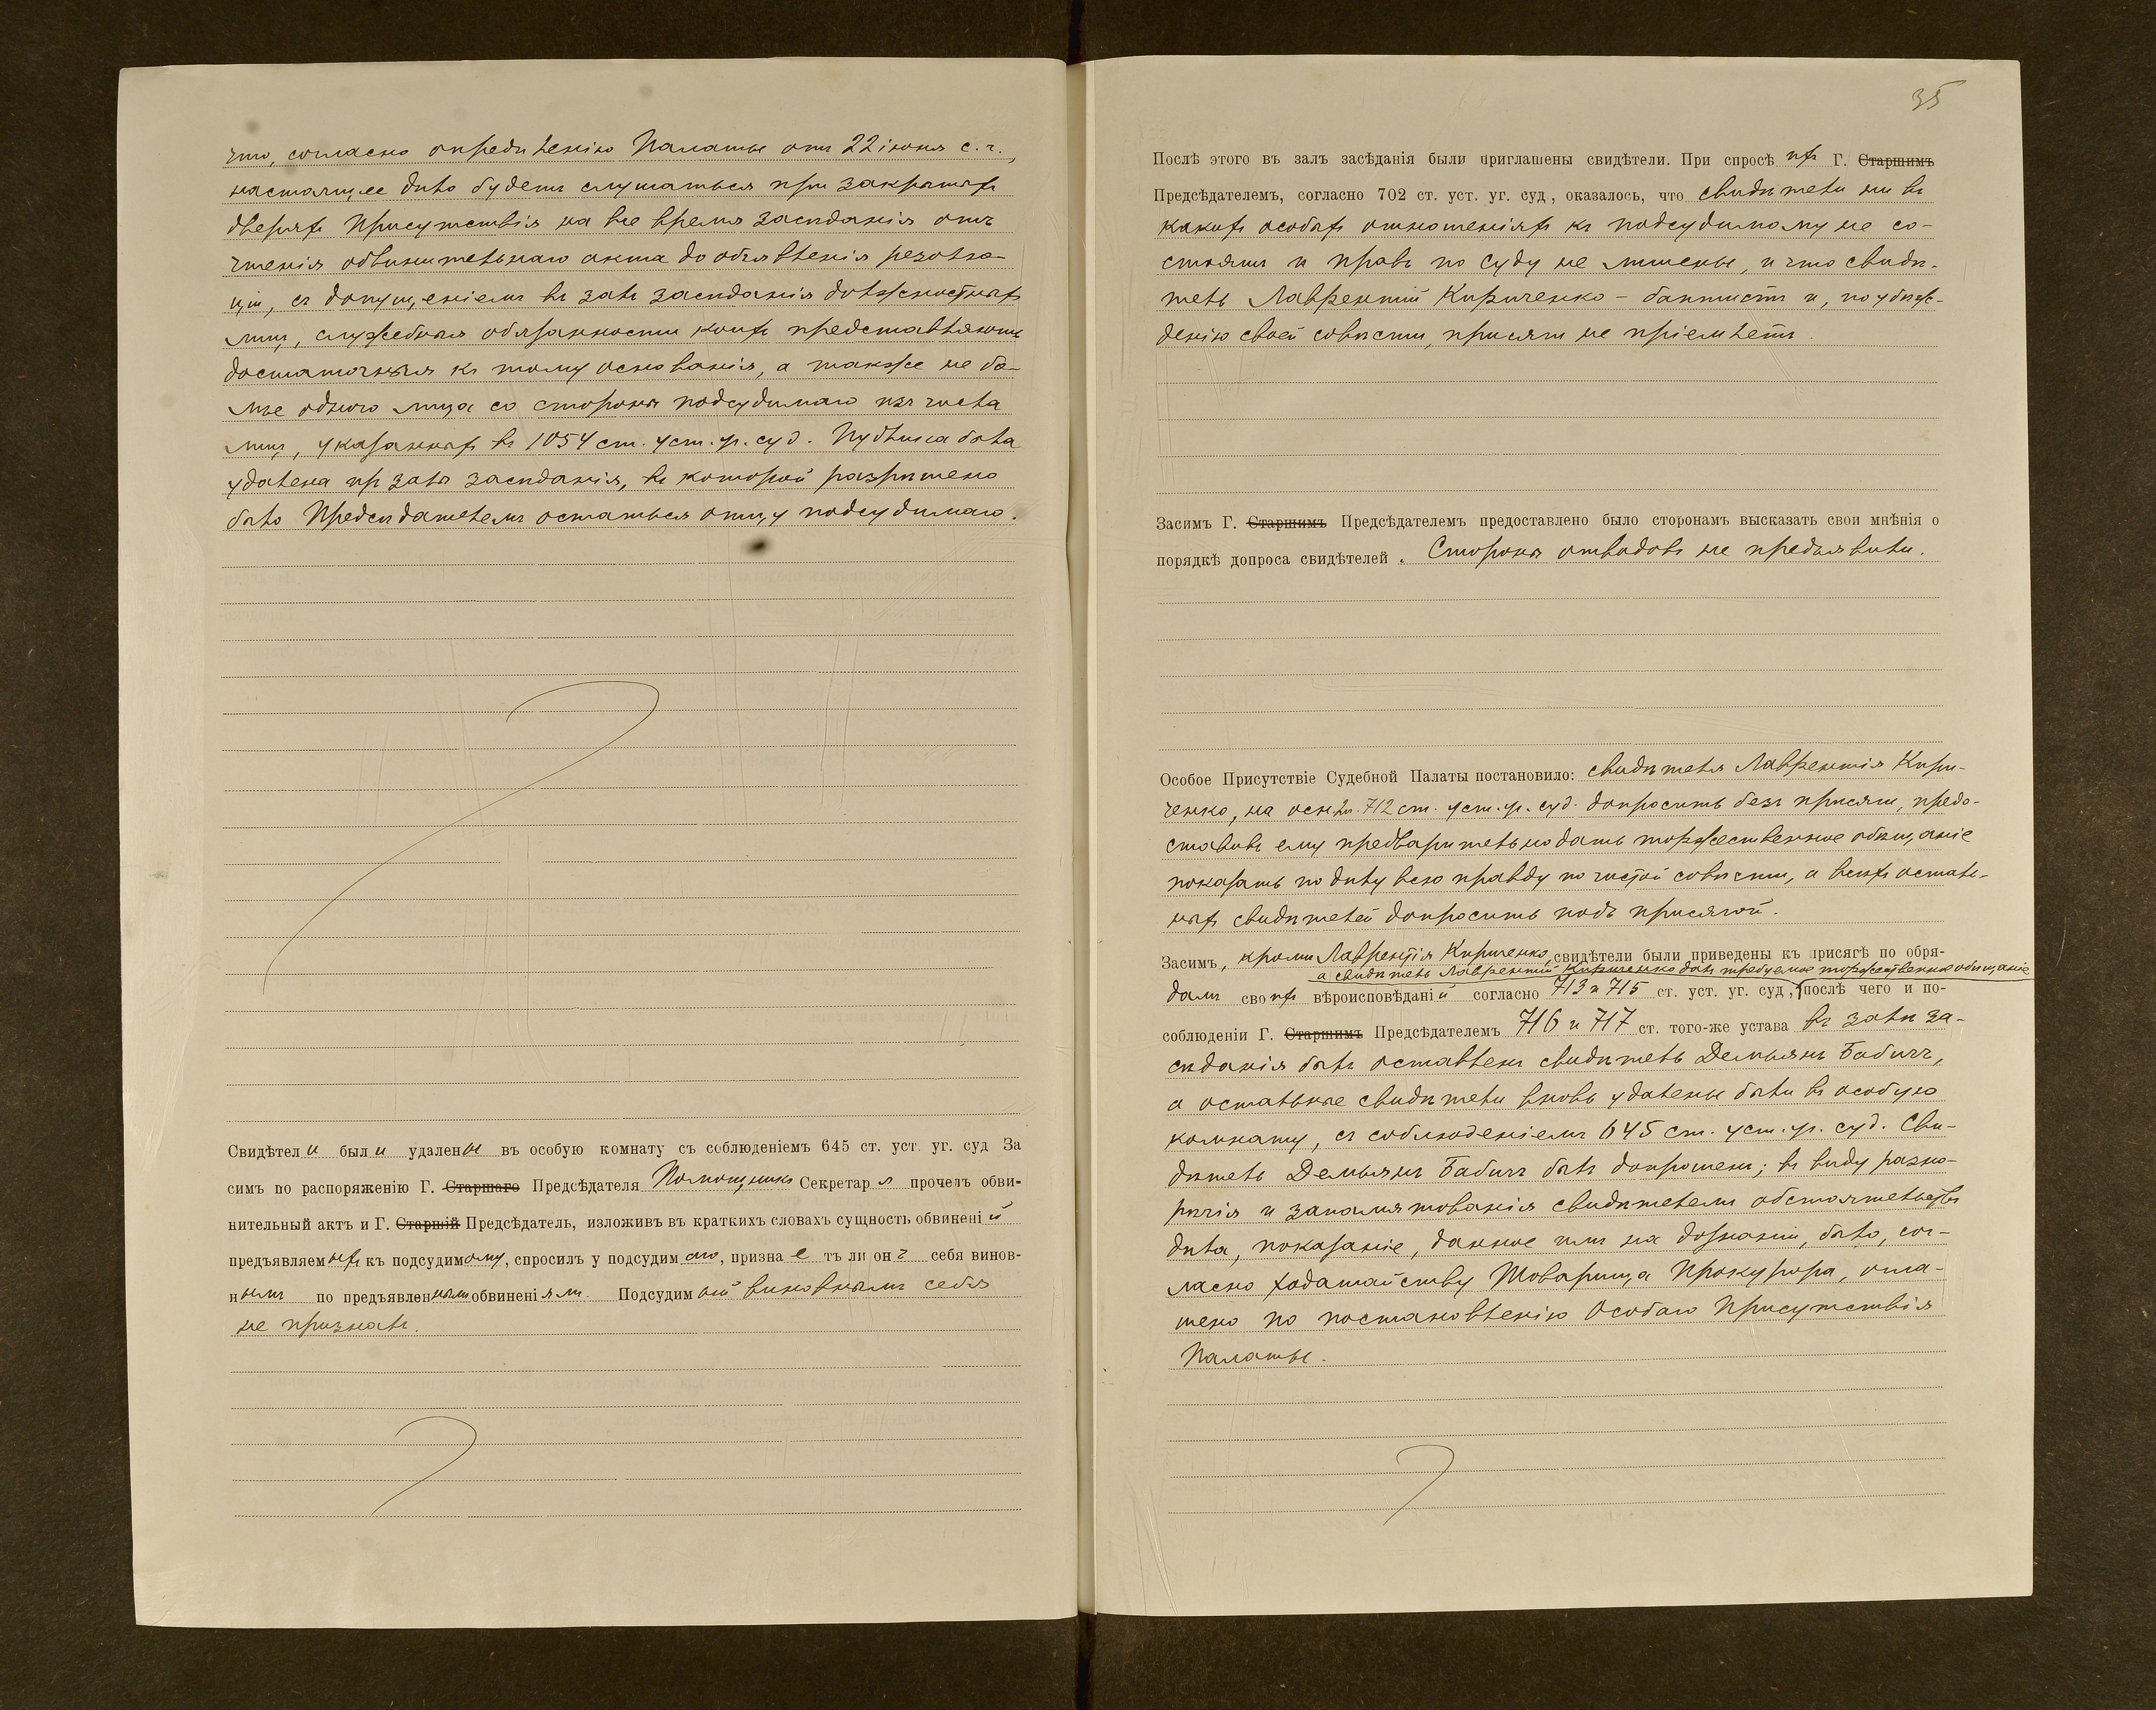 что, согласно опредѣленію Палаты отъ 22 іюня с. г.,
настоящее дѣло будетъ слушаться при закрытыхъ
дверяхъ Присутствія на все время засѣданія отъ
чтенія обвинительнаго акта до объявленія резолю-
ціи, съ допущеніемъ въ залъ засѣданія должностныхъ
лицъ, служебныя обязанности коихъ представляютъ
достаточныя къ тому основанія, а также не бо-
лѣе одного лица со стороны подсудимаго изъ числа
лицъ, указанныхъ въ 1054 ст. уст. уг. суд. Публика была
удалена изъ зала засѣданія, въ которой разрѣшено
было Предсѣдателемъ остаться отцу подсудимаго.
Свидѣтели были удалены въ особую комнату съ соблюденіемъ 645 ст. уст. уг. суд За
симъ по распоряженію Г. Старшаго Предсѣдателя Помощникъ Секретаря прочелъ обви-
нительный актъ и Г. Старшій Предсѣдатель, изложивъ въ краткихъ словахъ сущность обвиненій
предъявляемыхъ къ подсудимому, спросилъ у подсудимаго, признаетъ ли онъ себя винов-
нымъ по предъявленнымъ обвиненіямъ. Подсудимый виновнымъ себя
не призналъ.
35
Послѣ этого въ залъ засѣданія были приглашены свидѣтели. При спросѣ ихъ Г. Старшимъ
Предсѣдателемъ, согласно 702 ст. уст. уг. суд, оказалось, что свидѣтели ни въ
какихъ особыхъ отношеніяхъ къ подсудимому не со-
стоятъ и правъ по суду не лишены, и что свидѣ-
тель Лаврентій Кириченко - баптистъ и, по убѣж-
денію своей совѣсти, присяги не пріемлетъ.
Засимъ Г. Старшимъ Предсѣдателемъ предоставлено было сторонамъ высказать свои мнѣнія о
порядкѣ допроса свидѣтелей. Стороны отводовъ не предъявили.
Особое Присутствіе Судебной Палаты постановило: свидѣтеля Лаврентія Кири-
ченко, на осн. 712 ст. уст. уг. суд. допросить безъ присяги, предо-
ставивъ ему предварительно дать торжественное обѣщаніе
показать по дѣлу всю правду по чистой совѣсти, а всѣхъ осталь-
ныхъ свидѣтелей допросить подъ присягой.
Засимъ, кромѣ Лаврентія Кириченко, свидѣтели были приведены къ присягѣ по обря-
а свидѣтель Лаврентій Кириченко далъ требуемое торжественное обѣщаніе
дамъ своихъ вѣроисповѣданій согласно 713 и 715 ст. уст. уг. суд, послѣ чего и по-
соблюденіи Г. Старшимъ Предсѣдателемъ 716 и 717 ст. того-же устава въ залѣ за-
сѣданія былъ оставленъ свидѣтель Демьянъ Бабичъ,
а остальные свидѣтели вновь удалены были въ особую
комнату, съ соблюденіемъ 645 ст. уст. уг. суд. Сви-
дѣтель Демьянъ Бабичъ былъ допрошенъ; въ виду разно-
рѣчія и запамятованія свидѣтелемъ обстоятельствъ
дѣла, показаніе, данное имъ на дознаніи, было, сог-
ласно ходатайству Товарища Прокурора, огла-
шено по постановленію Особаго Присутствія
Палаты.